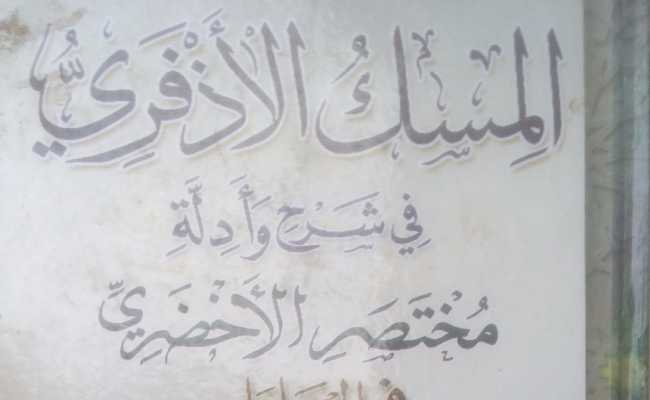 المِسكُ الأَذْفَرِيُّ
فِي شَرْحِ وَأَدِلَّةِ
مُخْتَصَرِ الأَخْضَرِيِّ
في